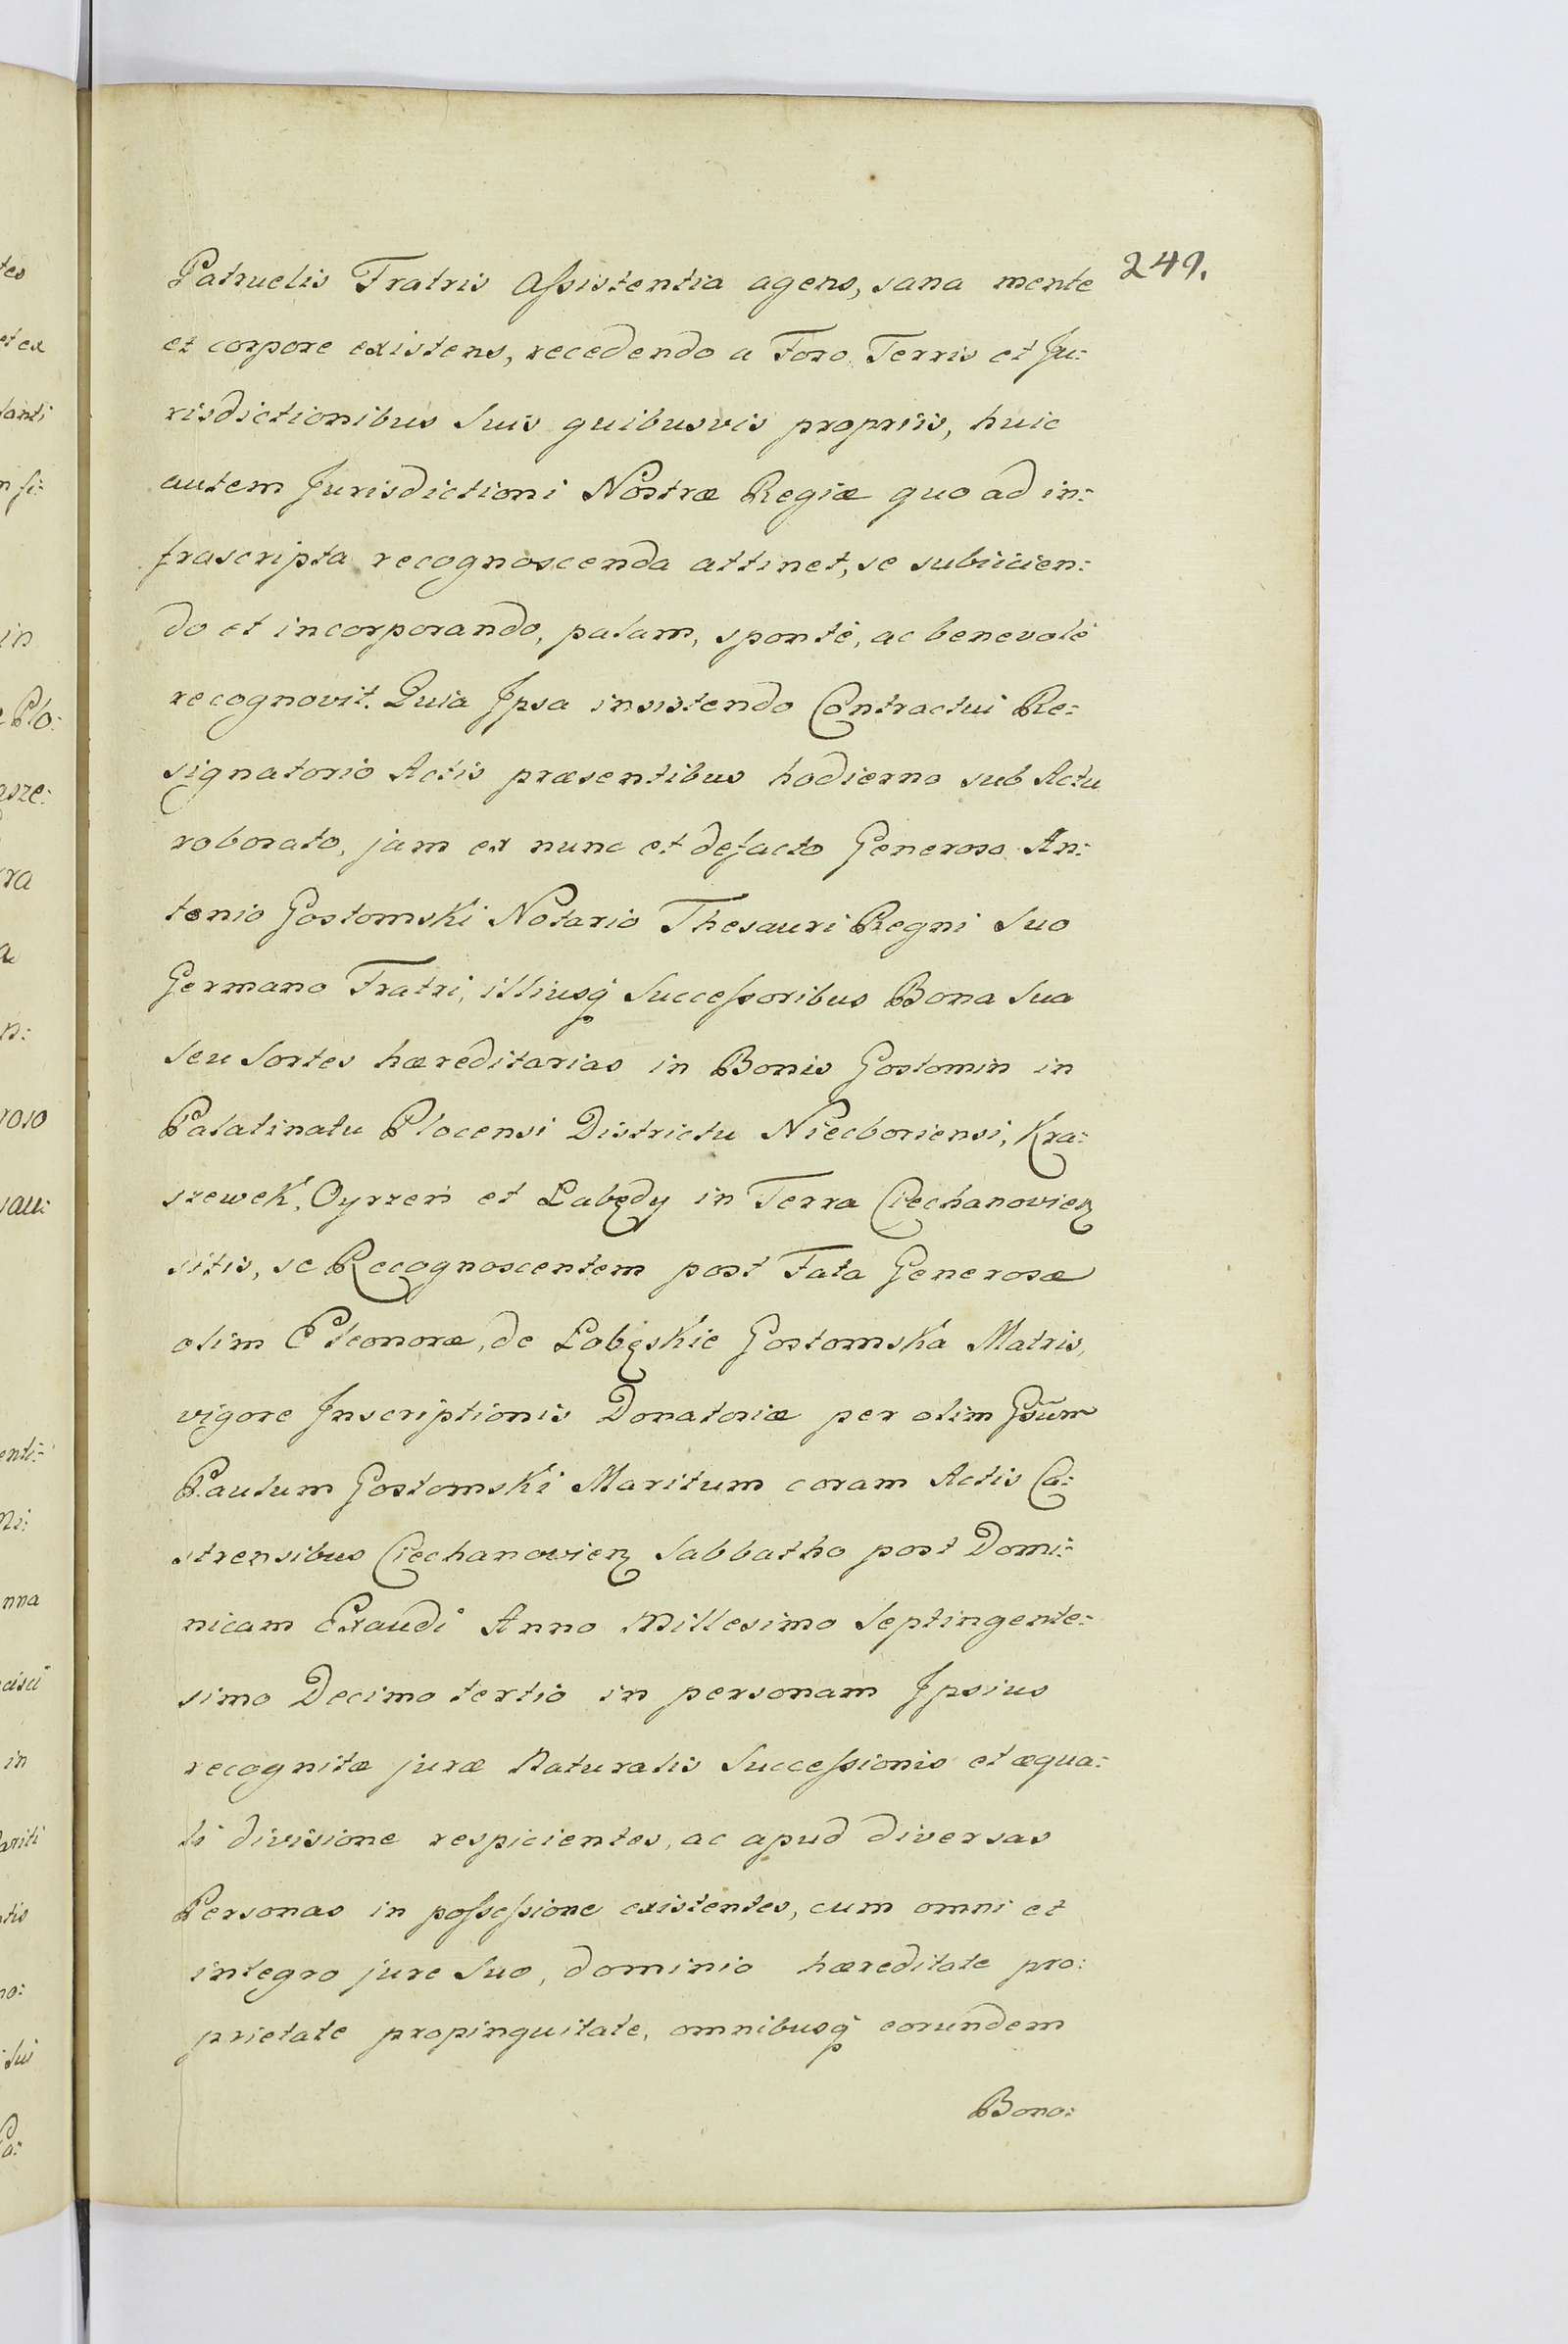 249.
Patruelis Fratris Assistentia agens, sana mente
et corpore existens, recedendo a Foro Terris et Ju:
risdictionibus Suis quibusvis propriis, huic
autem Jurisdictioni Nostræ Regiæ quo ad in:
frascripta recognoscenda attinet, se subiicien:
do et incorporando, palam, spontè, ac benevolè
recognovit. Quia Ipsa insistendo Contractui Re:
signatorio Actis præsentibus hodierno sub Actu
roborato, jam ex nunc et defacto Generoso An:
tonio Gostomski Notario Thesauri Regni Suo
Germano Fratri, illiusq̃ Successoribus Bona Sua
Seu Sortes hæreditarias in Bonis Gostomin in
Palatinatu Plocensi Districtu Niedboriensi, Kra:
szewek, Oyrzeń et Łabędy in Terra Ciechanovien
sitis, se Recognoscentem post Fata Generosæ
olim Eleonoræ, de Łobęskie Gostomska Matris,
vigore Inscriptionis Donatoriæ per olim Gsũm
Paulum Gostomski Maritum coram Actis Ca:
strensibus Ciechanovien Sabbatho post Domi:
nicam Exaudi Anno Millesimo Septingente:
simo Decimo tertio in personam Ipsius
recognitæ juræ Naturalis Successionis et æqua:
li divisione respicientes, ac apud diversas
Personas in possessione existentes, cum omni et
integro jure Suo, dominio hæreditate pro:
prietate propinquitate, omnibusq̃ eorundem
Bono: